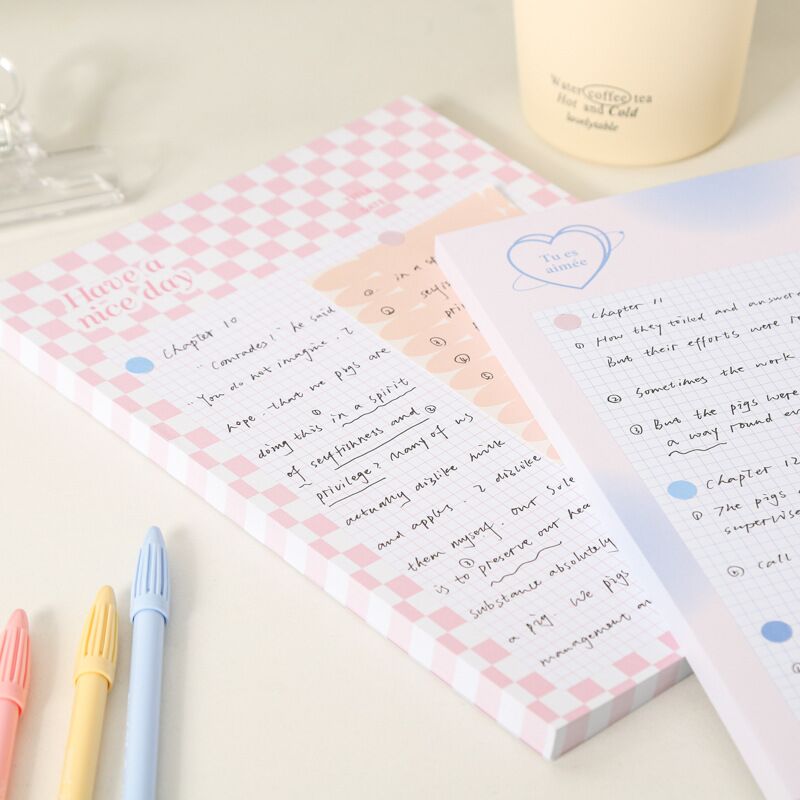 Water coffee tea
Hot and Cold
lovelytable
Have a
nice day
Chapter 10
"Comrades!" he said
"You do not imagine, I
hope that we pigs are
doing this ① in a spirit
of selfishness and ②
privilege? Many of us
actually dislike milk
and apples. I dislike
them myself. Our sole
③
is to preserve our hea
substance absolutely
a pig. We pigs
management an
① in a s
② selfi
pri
③
④
⑤
Tu es
aimée
Chapter 11
① How they toiled and answer
But their efforts were r
② Sometimes the work
③ But the pigs were
a way round ev
Chapter 12
① The pigs
supervise
② Call